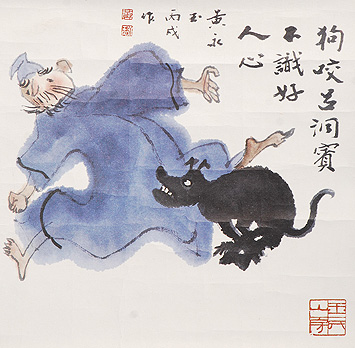 狗咬吕洞賓
不識好
人心
黄永
玉
丙戌
作